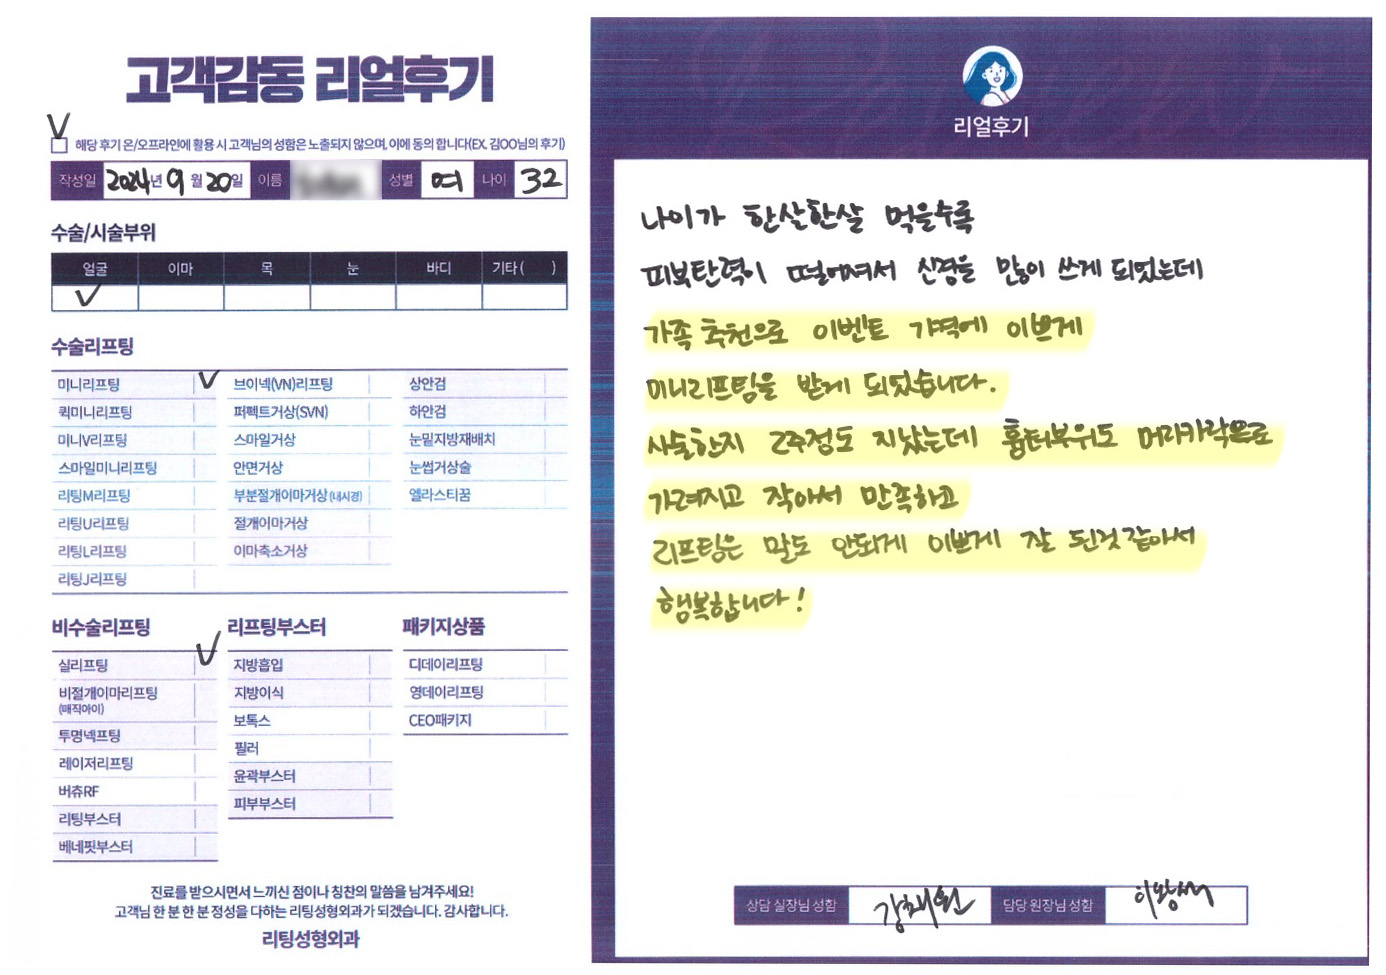 고객감동 리얼후기
해당 후기 온/오프라인에 활용 시 고객님의 성함은 노출되지 않으며, 이에 동의 합니다(EX. 김OO님의 후기)
작성일 2024년 9월 20일 이름 성별 여 나이 32
수술/시술부위
얼굴 이마 목 눈 바디 기타( )
수술리프팅
미니리프팅 브이넥(VN)리프팅 상안검
퀵미니리프팅 퍼펙트거상(SVN) 하안검
미니V리프팅 스마일거상 눈밑지방재배치
스마일미니리프팅 안면거상 눈썹거상술
리팅M리프팅 부분절개이마거상(내시경) 엘라스티꿈
리팅U리프팅 절개이마거상
리팅L리프팅 이마축소거상
리팅J리프팅
비수술리프팅 리프팅부스터 패키지상품
실리프팅 지방흡입 디데이리프팅
비절개이마리프팅 지방이식 영데이리프팅
(매직아이)
보톡스 CEO패키지
투명넥프팅 필러
레이저리프팅 윤곽부스터
버츄RF 피부부스터
리팅부스터
베네핏부스터
진료를 받으시면서 느끼신 점이나 칭찬의 말씀을 남겨주세요!
고객님 한 분 한 분 정성을 다하는 리팅성형외과가 되겠습니다. 감사합니다.
리팅성형외과
리얼후기
나이가 한살한살 먹을수록
피부탄력이 떨어져서 신경을 많이 쓰게 되었는데
가족 추천으로 이벤트 가격에 이쁘게
미니리프팅을 받게 되었습니다.
시술한지 2주정도 지났는데 흉터부위도 머리카락으로
가려지고 작아서 만족하고
리프팅은 말도 안되게 이쁘게 잘 된것 같아서
행복합니다!
상담 실장님 성함 강채원 담당 원장님 성함